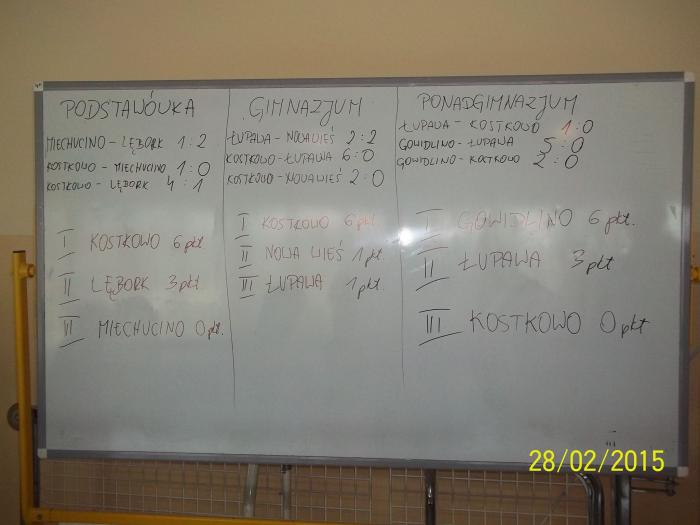 PODSTAWÓWKA
MIECHUCINO - LĘBORK 1:2
KOSTKOWO - MIECHUCINO 1:0
KOSTKOWO - LĘBORK 4:1
I KOSTKOWO 6 pkt.
II LĘBORK 3 pkt.
III MIECHUCINO 0 pkt.
GIMNAZJUM
ŁUPAWA - NOWA WIEŚ 2:2
KOSTKOWO - ŁUPAWA 6:0
KOSTKOWO - NOWA WIEŚ 2:0
I KOSTKOWO 6 pkt.
II NOWA WIEŚ 1 pkt.
III ŁUPAWA 1 pkt.
PONADGIMNAZJUM
ŁUPAWA - KOSTKOWO 1:0
GOWIDLINO - ŁUPAWA 5:0
GOWIDLINO - KOSTKOWO 2:0
I GOWIDLINO 6 pkt.
II ŁUPAWA 3 pkt
III KOSTKOWO 0 pkt
28/02/2015